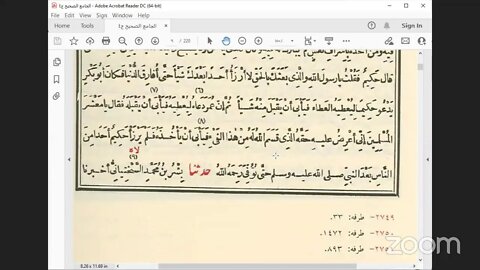 Adobe Acrobat Reader DC (64-bit)
File Edit View Sign Window Help
Home Tools الجامع الصحيح Sign In
/ 220
قال حكيم فقلت يا رسول الله والذي بعثك بالحق لا أرزأ أحدا بعدك شيئا حتى أفارق الدنيا فكان أبو بكر
(٦) (٧)
يدعو حكيما ليعطيه العطاء فيأبى أن يقبل منه شيئا ثم إن عمر دعاه ليعطيه فيأبى أن يقبله فقال يا معشر
(٨)
المسلمين إني أعرض عليه حقه الذي قسم الله له من هذا الفيء فيأبى أن يأخذه فلم يرزأ حكيم أحدا من
(٩)
الناس بعد النبي صلى الله عليه وسلم حتى توفي رحمه الله حدثنا بشر بن محمد السختياني أخبرنا
٢٧٤٩- طرفه: ٣٣.
٢٧٥٠- طرفه: ١٤٧٢.
٢٧٥١- طرفه: ٨٩٣.
8.26 x 11.69 in
zoom